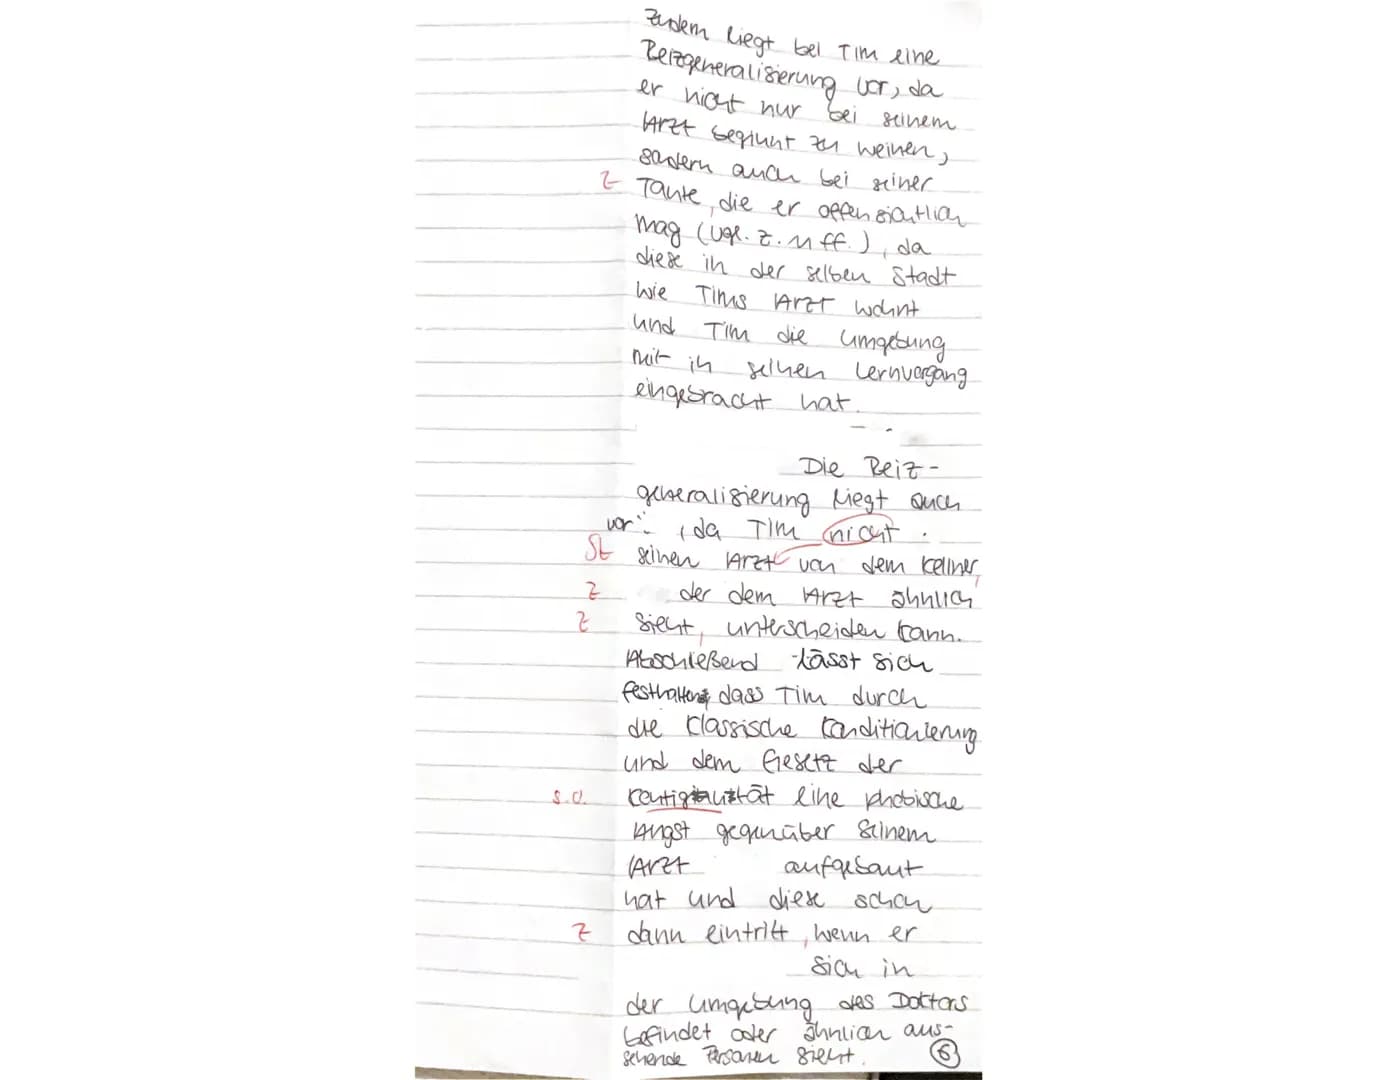 Zudem liegt bei Tim eine
Reizgeneralisierung vor, da
er nicht nur bei seinem
Arzt beginnt zu weinen,
sondern auch bei seiner
Z Tante, die er offensichtlich
mag (vgl. Z. 11 ff.), da
diese in der selben Stadt
wie Tims Arzt wohnt
und Tim die Umgebung
mit in seinen Lernvorgang
eingebracht hat.
Die Reiz-
generalisierung liegt auch
vor, da Tim nicht
St seinen Arzt von dem Kellner,
Z der dem Arzt ähnlich
Z sieht, unterscheiden kann.
Abschließend lässt sich
festhalten, dass Tim durch
die klassische Konditionierung
und dem Gesetz der
s.o. Kontiguität eine phobische
Angst gegenüber seinem
Arzt aufgebaut
hat und diese schon
Z dann eintritt, wenn er
sich in
der Umgebung des Doktors
befindet oder ähnlich aus-
sehende Personen sieht. 6